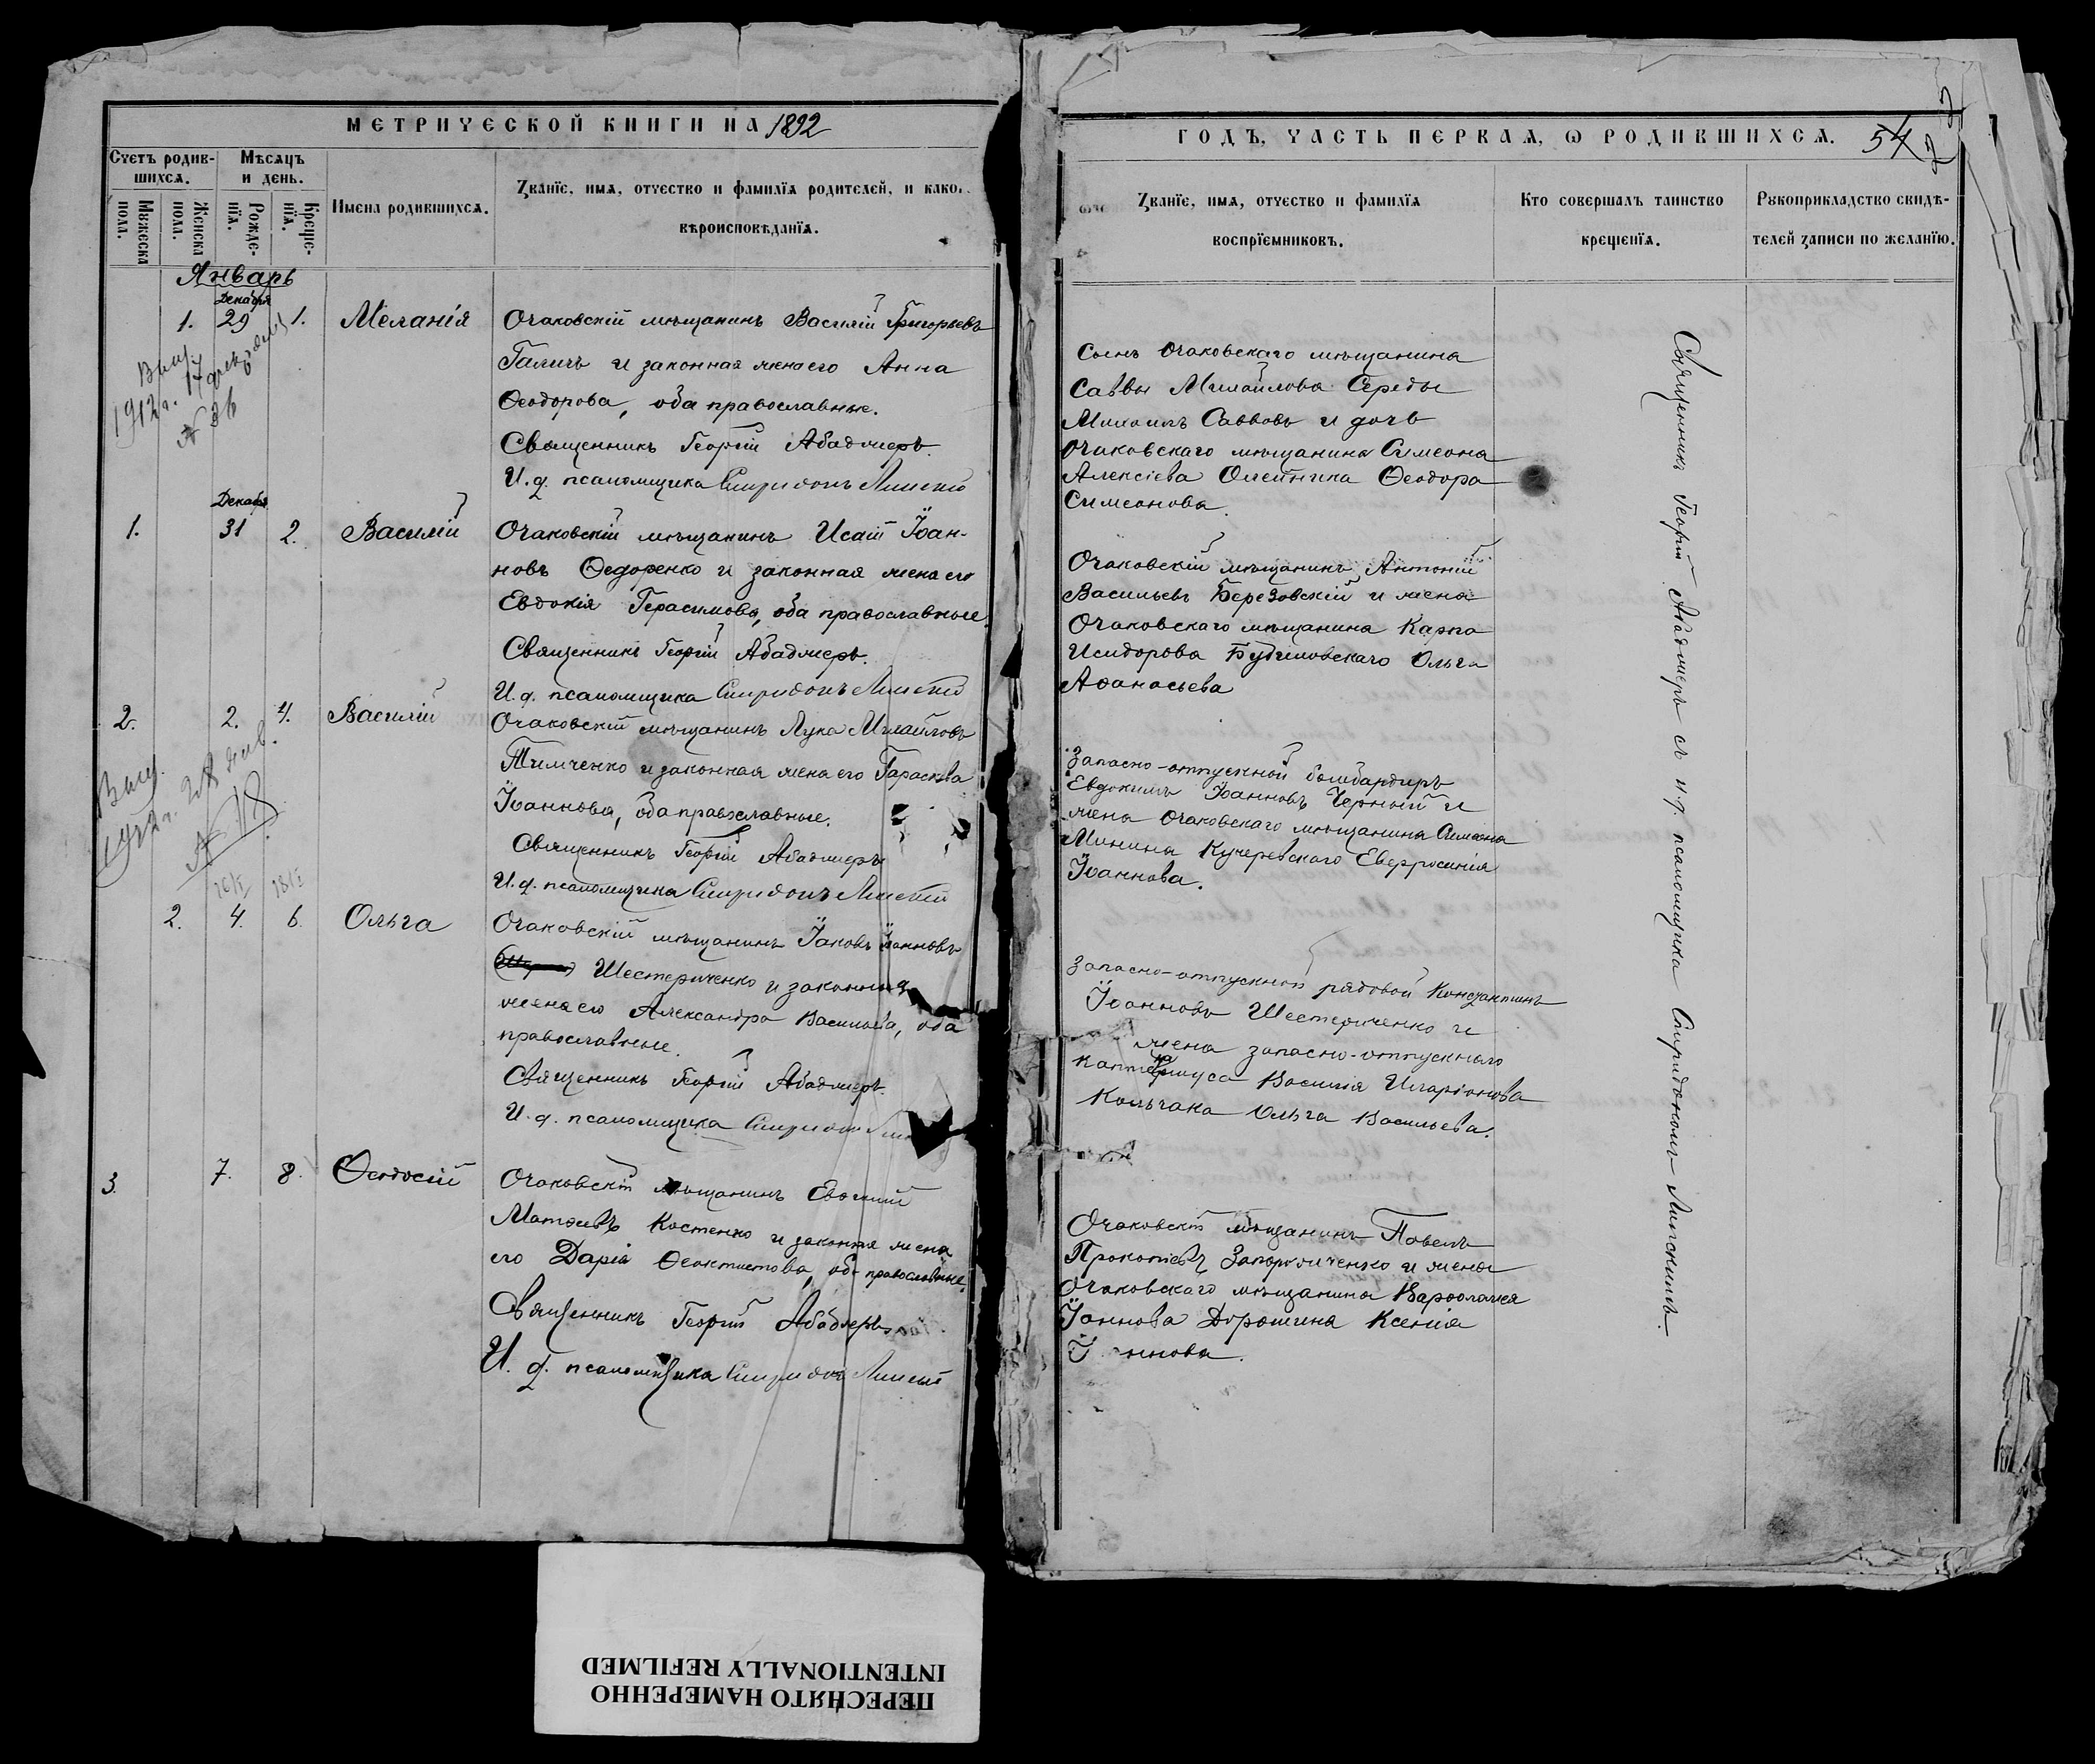 МЕТРИЧЕСКОЙ КНИГИ НА 1892
Счетъ родив-
шихся.
Мѣсяцъ
и день.
Мужеска
пола.
Женска
пола.
Рожде-
нія.
Креще-
нія.
Имена родившихся.
Званіе, имя, отчество и фамилія родителей, и како
вѣроисповѣданія.
Январь
Декабря
1. 29 1. Меланія
Очаковскій мѣщанинъ Василій Григорьевъ
Галичъ и законная жена его Анна
Ѳеодорова, оба православные.
Священникъ Георгій Абаджеръ.
И. д. псаломщика Спиридонъ Липскій
1912 г.
№ 36
Декабря
1. 31 2. Василій
Очаковскій мѣщанинъ Исаій Іоан-
новъ Ѳедоренко и законная жена его
Евдокія Герасимова, оба православные.
Священникъ Георгій Абаджеръ.
И. д. псаломщика Спиридонъ Липскій
2. 2. 4. Василій
Очаковскій мѣщанинъ Лука Михайловъ
Тимченко и законная жена его Параскева
Іоаннова, оба православные.
Священникъ Георгій Абаджеръ
И. д. псаломщика Спиридонъ Липскій
№ 18
2. 4. 6. Ольга
Очаковскій мѣщанинъ Іаковъ Іоанновъ
Шестериченко и законная
жена его Александра Васильева, оба
православные.
Священникъ Георгій Абаджеръ.
И. д. псаломщика Спиридонъ
3. 7. 8. Ѳеодосій
Очаковскій мѣщанинъ Евѳимій
Матѳеевъ Костенко и законная жена
его Дарія Ѳеоктистова, оба православные.
Священникъ Георгій Абаджеръ
И. д. псаломщика Спиридонъ Липскій
ГОДЪ, ЧАСТЬ ПЕРВАЯ, Ѡ РОДИВШИХСЯ. 54
Званіе, имя, отчество и фамилія
воспріемниковъ.
Кто совершалъ таинство
крещенія.
Рукоприкладство свидѣ-
телей записи по желанію.
Сынъ Очаковскаго мѣщанина
Саввы Михайлова Середы
Михаилъ Саввовъ и дочь
Очаковскаго мѣщанина Симеона
Алексіева Олейника Ѳеодора
Симеонова.
Очаковскій мѣщанинъ Антоній
Васильевъ Березовскій и жена
Очаковскаго мѣщанина Карпа
Исидорова Будиловскаго Ольга
Аѳанасьева
Запасно-отпускной бомбардиръ
Евдокимъ Іоанновъ Черный и
жена Очаковскаго мѣщанина Симеона
Минина Кучеревскаго Евфросинія
Іоаннова.
Запасно-отпускной рядовой Константинъ
Іоанновъ Шестериченко и
жена запасно-отпускнаго
каптенармуса Василія Иларіонова
Кольчака Ольга Васильева.
Очаковскій мѣщанинъ Павелъ
Прокопіевъ Запорожченко и жена
Очаковскаго мѣщанина Варѳоломея
Іоаннова Дорошина Ксенія
Іоаннова.
Священникъ Георгій Абаджеръ съ и. д. псаломщика Спиридономъ Липскимъ.
ПЕРЕСНЯТО НАМЕРЕННО
INTENTIONALLY REFILMED